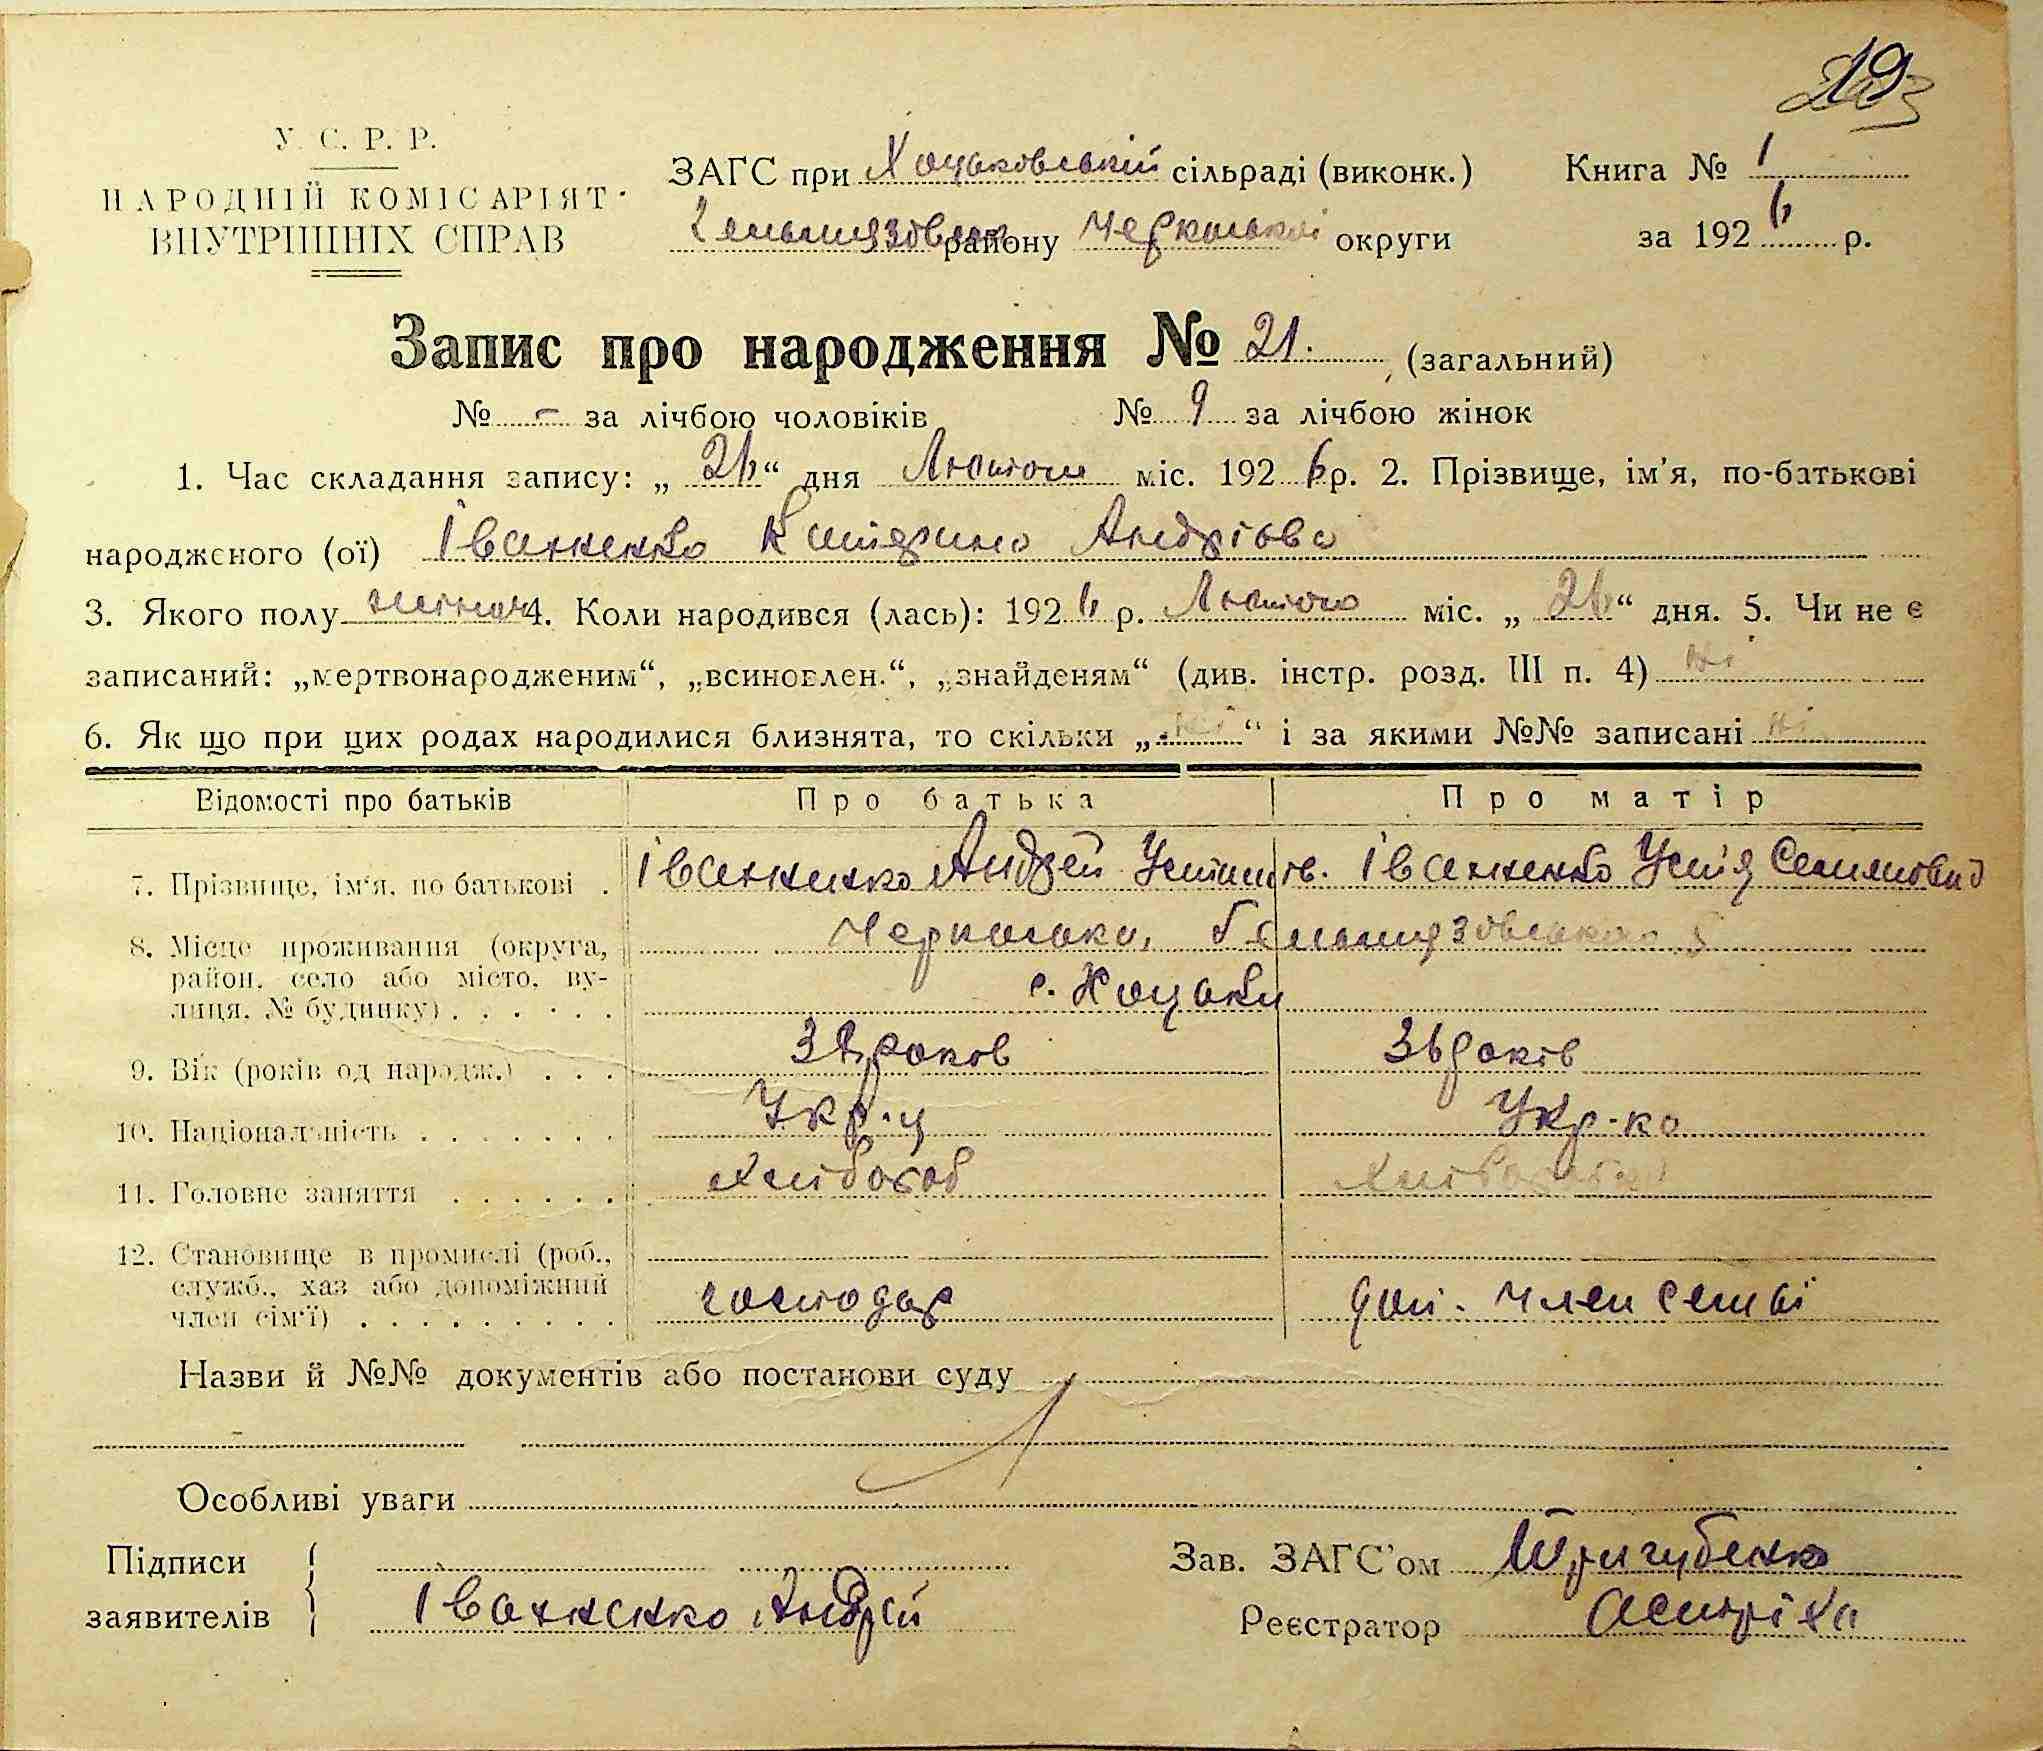 19
У. С. Р. Р.
НАРОДНІЙ КОМІСАРІЯТ
ВНУТРІШНІХ СПРАВ
ЗАГС при Хоцьковській сільраді (виконк.) Книга № 1
району Черкаської округи за 1926 р.
Запис про народження № 21. (загальний)
№ - за лічбою чоловіків № 9 за лічбою жінок
1. Час складання запису: „26“ дня Лютого міс. 1926 р. 2. Прізвище, ім'я, по-батькові
народженого (ої) Іваненко Катерина Андрієва
3. Якого полу жіноч 4. Коли народився (лась): 1926 р. Лютого міс. „26“ дня. 5. Чи не є
записаний: „мертвонародженим“, „всиновлен.“, „знайденям“ (див. інстр. розд. III п. 4) ні
6. Як що при цих родах народилися близнята, то скільки „ні“ і за якими №№ записані ні
Відомості про батьків Про батька Про матір
7. Прізвище, ім'я, по батькові . Іваненко Андрей Устимов. Іваненко Устя
8. Місце проживання (округа, Черкаська,
район, село або місто, ву-
лиця, № будинку) . . . . . . с. Хоцьки
9. Вік (років од народж.) . . . роков 36 років
10. Національність . . . . . . . Укр-ц Укр-ка
11. Головне заняття . . . . . . Хлібороб
12. Становище в промислі (роб.,
служб., хаз або допоміжний
член сім'ї) . . . . . . . . . господар доп. член семьї
Назви й №№ документів або постанови суду
Особливі уваги
Підписи Зав. ЗАГС'ом Тригубенко
заявителів Іваненко Андрей Реєстратор